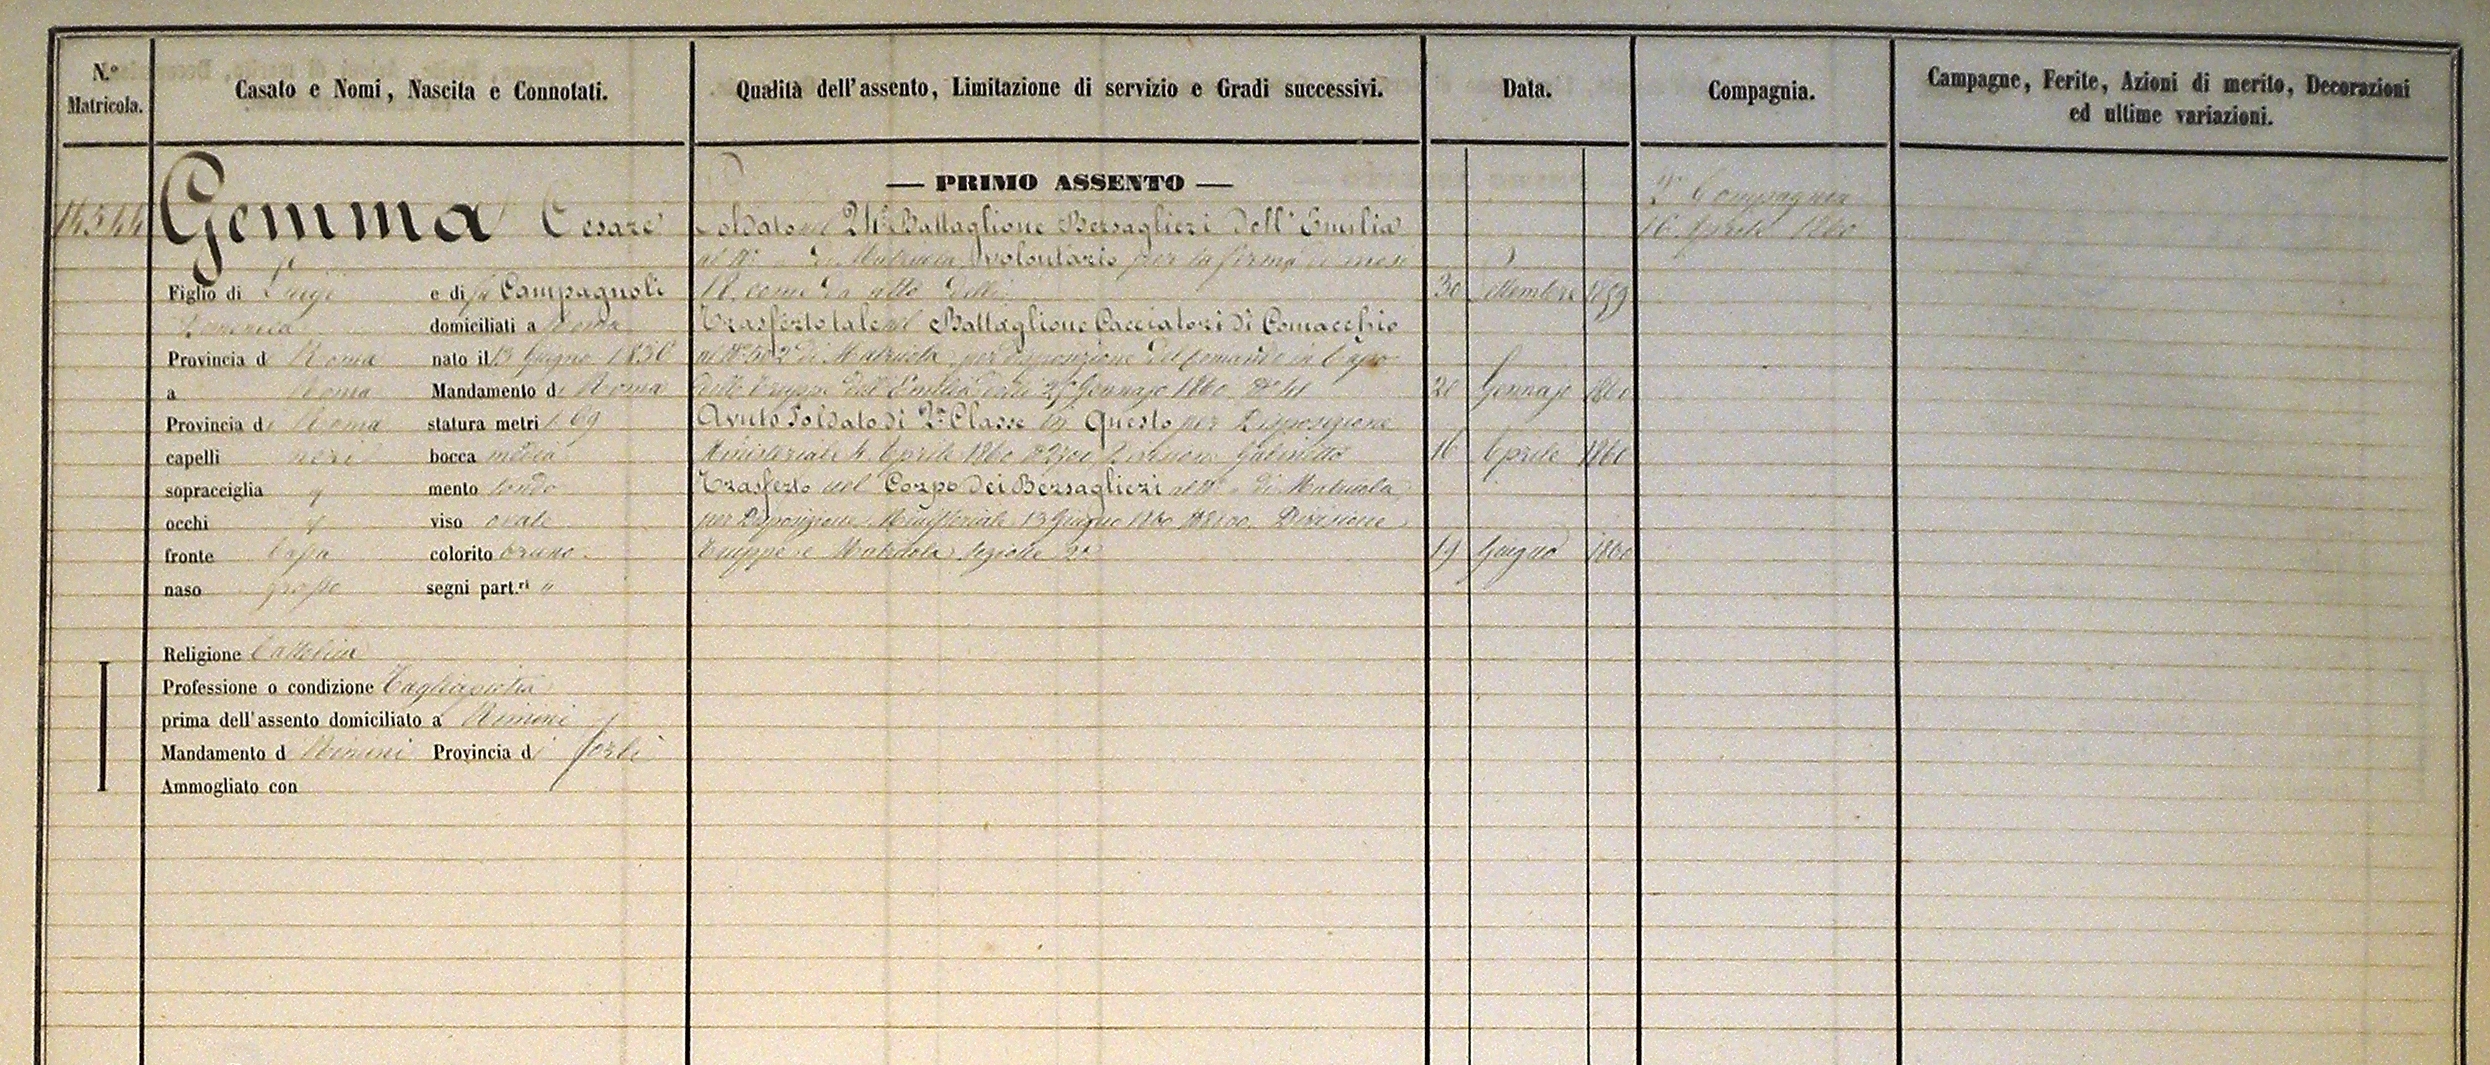 N.° Matricola.
Casato e Nomi, Nascita e Connotati.
Qualità dell'assento, Limitazione di servizio e Gradi successivi.
Data.
Compagnia.
Campagne, Ferite, Azioni di merito, Decorazioni
ed ultime variazioni.
14544
Gemma Cesare
Figlio di Luigi e di fu Campagnoli
Domenica domiciliati a Roma
Provincia di Roma nato il 13 Giugno
a Roma Mandamento di Roma
Provincia di Roma statura metri 1.69
capelli neri bocca media
sopracciglia mento tondo
occhi viso ovale
fronte bassa colorito bruno
naso grosso segni part.ri "
Religione Cattolica
Professione o condizione Tagliapietra
prima dell'assento domiciliato a Rimini
Mandamento d Rimini Provincia di Forlì
Ammogliato con
— PRIMO ASSENTO —
Soldato nel Battaglione Bersaglieri dell'Emilia
al N.° " di Matricola volontario per la ferma di mesi
18 come da atto delli 30 Settembre 1859
Trasferto tale nel Battaglione Cacciatori di Comacchio
al N.° di Matricola per disposizione del Comando in Capo
delle Truppe dell'Emilia Gennajo 1860 20 Gennajo 1860
Avuto Soldato di 2ª Classe in Questo per Disposizione
Ministeriale 4 Aprile 1860 Gabinetto 16 Aprile 1860
Trasferto nel Corpo dei Bersaglieri al N.° " di Matricola
per Disposizione Ministeriale 13 Giugno 1860 Divisione
Truppe e Matricola Sezione 2ª 19 Giugno 1860
Compagnia
16 Aprile 1860